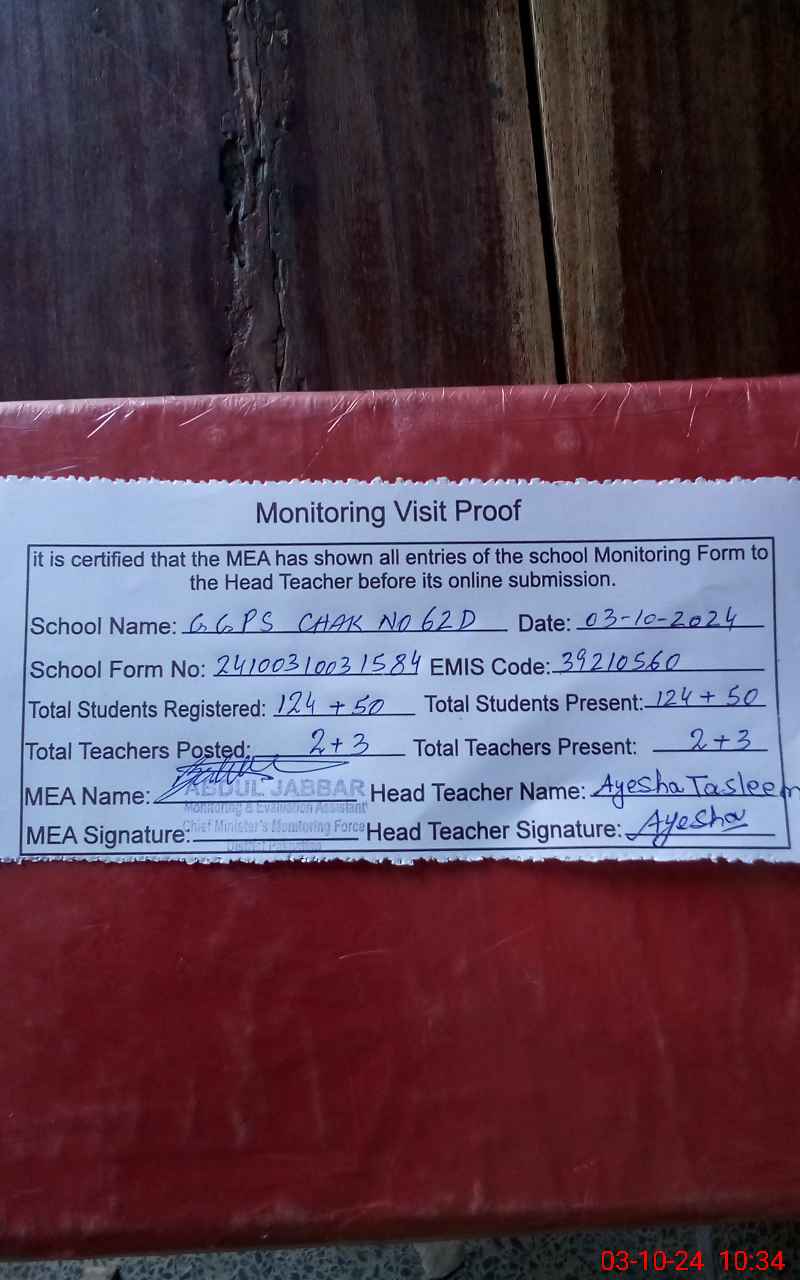 Monitoring Visit Proof
it is certified that the MEA has shown all entries of the school Monitoring Form to
the Head Teacher before its online submission.
School Name: GGPS CHAK NO 62D Date: 03-10-2024
School Form No: 24100310031584 EMIS Code: 39210560
Total Students Registered: 124 + 50 Total Students Present: 124 + 50
Total Teachers Posted: 2+3 Total Teachers Present: 2+3
MEA Name: ABDUL JABBAR Head Teacher Name: Ayesha Tasleem
Monitoring & Evaluation Assistant
MEA Signature: Chief Minister's Monitoring Force Head Teacher Signature: Ayesha
District Pakpattan
03-10-24 10:34